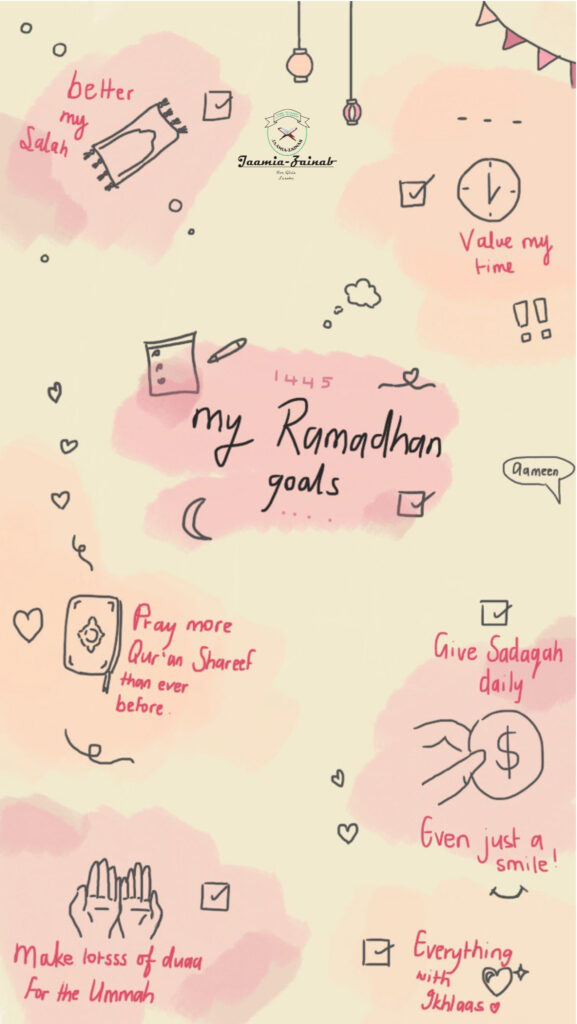 better
my
Salah
JAAMIA-ZAINAB
Jaamia-Zainab
For Girls
Value my
time
!!
1445
my Ramadhan
goals
Aameen
Pray more
Qur'an Shareef
than ever
before.
Give Sadaqah
daily
$
Even just a
smile!
Make lotsss of duaa
for the Ummah
Everything
with
Ikhlaas